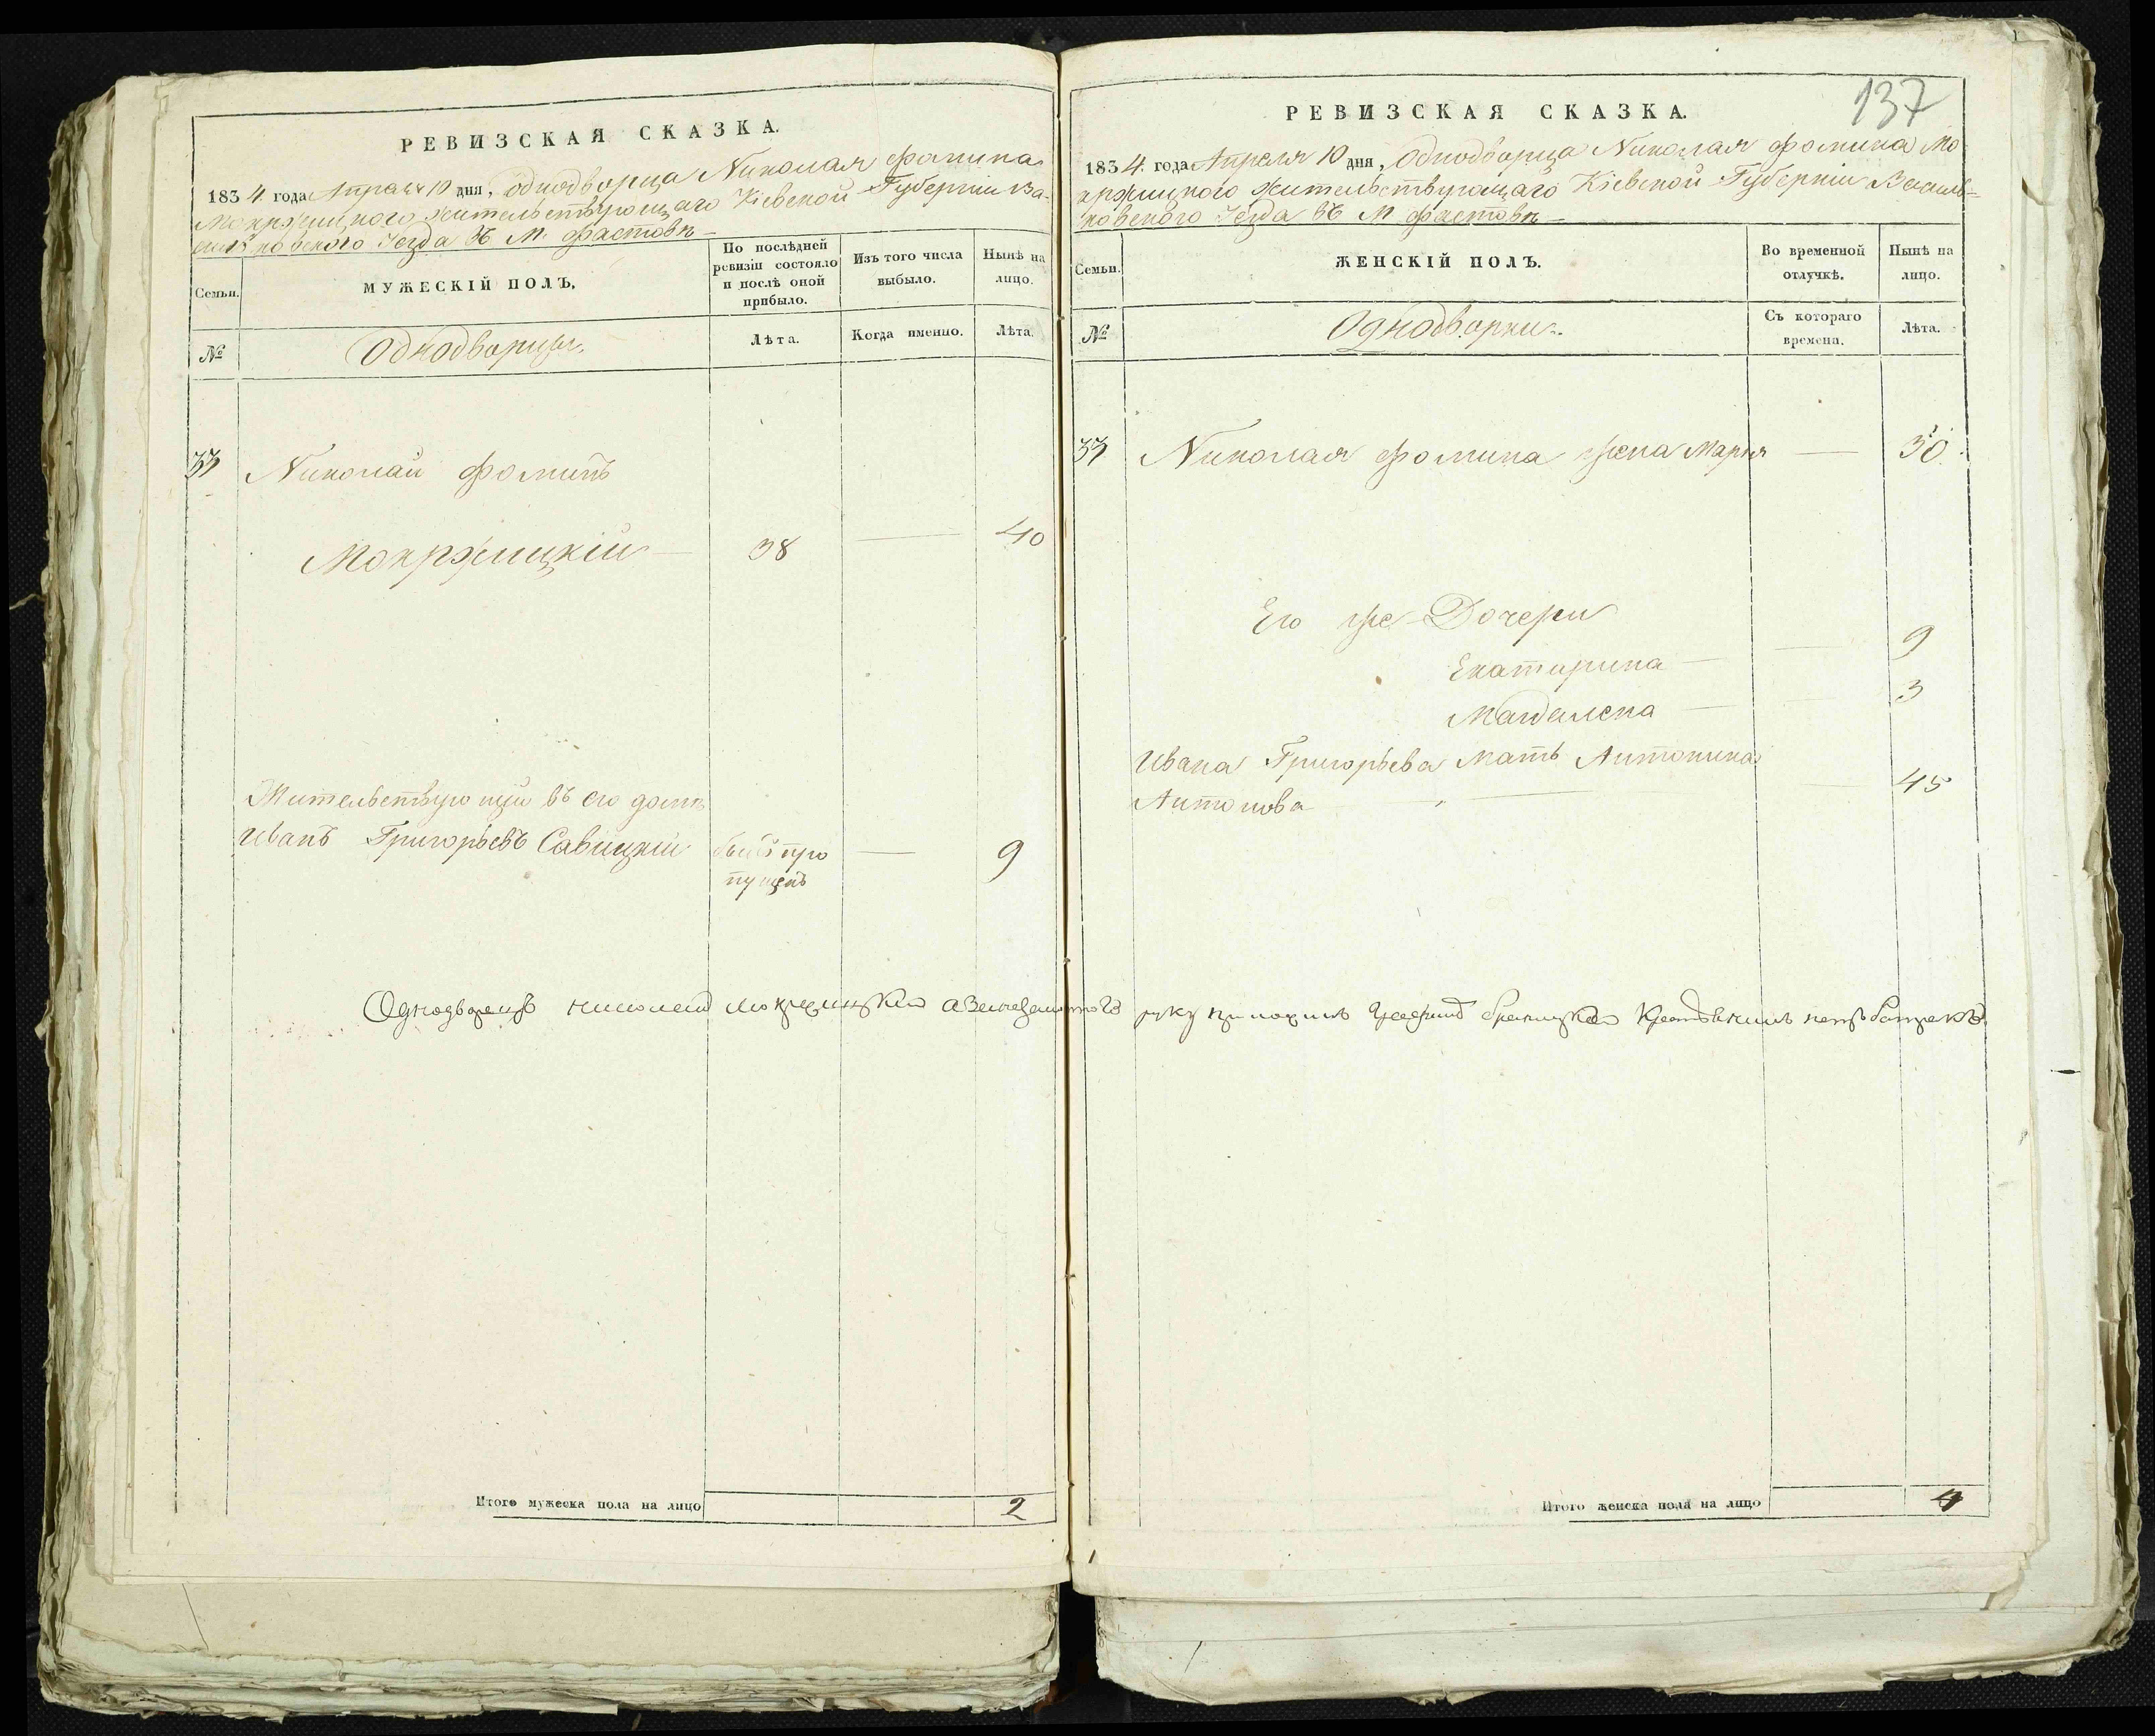 РЕВИЗСКАЯ СКАЗКА.
1834. года Апреля 10 дня, однодворца Николая Фомина
Мокржицкого жительствующаго Кіевской Губерніи Ва-
сильковского Уезда въ М. Фастовѣ
Семьи.
МУЖЕСКІЙ ПОЛЪ.
По послѣдней ревизіи состояло и послѣ оной прибыло.
Изъ того числа выбыло.
Нынѣ на лицо.
№
Однодворцы.
Лѣта.
Когда именно.
Лѣта.
33 Николай Фоминъ
Мокржицкій — 38 — 40
Жительствующій въ его домѣ
Иванъ Григорьевъ Савицкій былъ про — 9
пущенъ
Итого мужеска пола на лицо 2
137
РЕВИЗСКАЯ СКАЗКА.
1834. года Апреля 10 дня, Однодворца Николая Фомина Мо
кржицкого жительствующаго Кіевской Губерніи Василь=
ковского Уезда въ М. Фастовѣ
Семьи.
ЖЕНСКІЙ ПОЛЪ.
Во временной отлучкѣ.
Нынѣ на лицо.
№
Однодворки.
Съ котораго времена.
Лѣта.
33 Николая Фомина жена Марья — 30.
Его же Дочери
Екатирина — 9
Магдалена — 3
Ивана Григорьева Мать Антонина
Антонова — 45
Однодворецъ николай мокржицкій а руку приложилъ
Итого женска пола на лицо 4